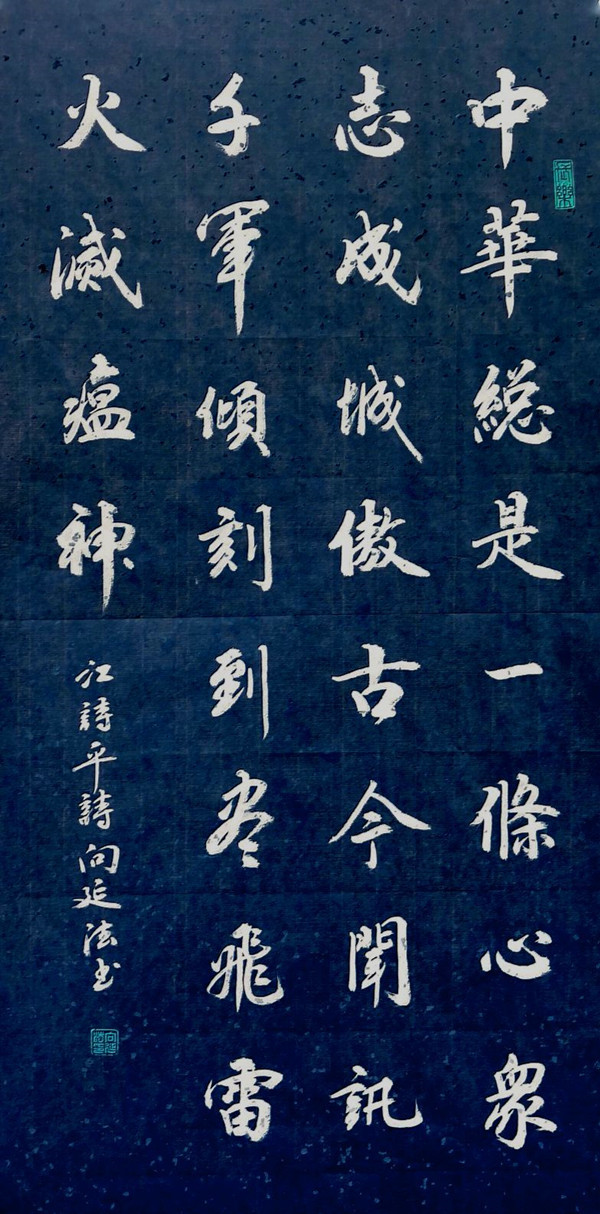 中華總是一條心眾
志成城傲古今聞訊
千軍傾刻到盡飛雷
火滅瘟神
江詩平詩向延法书